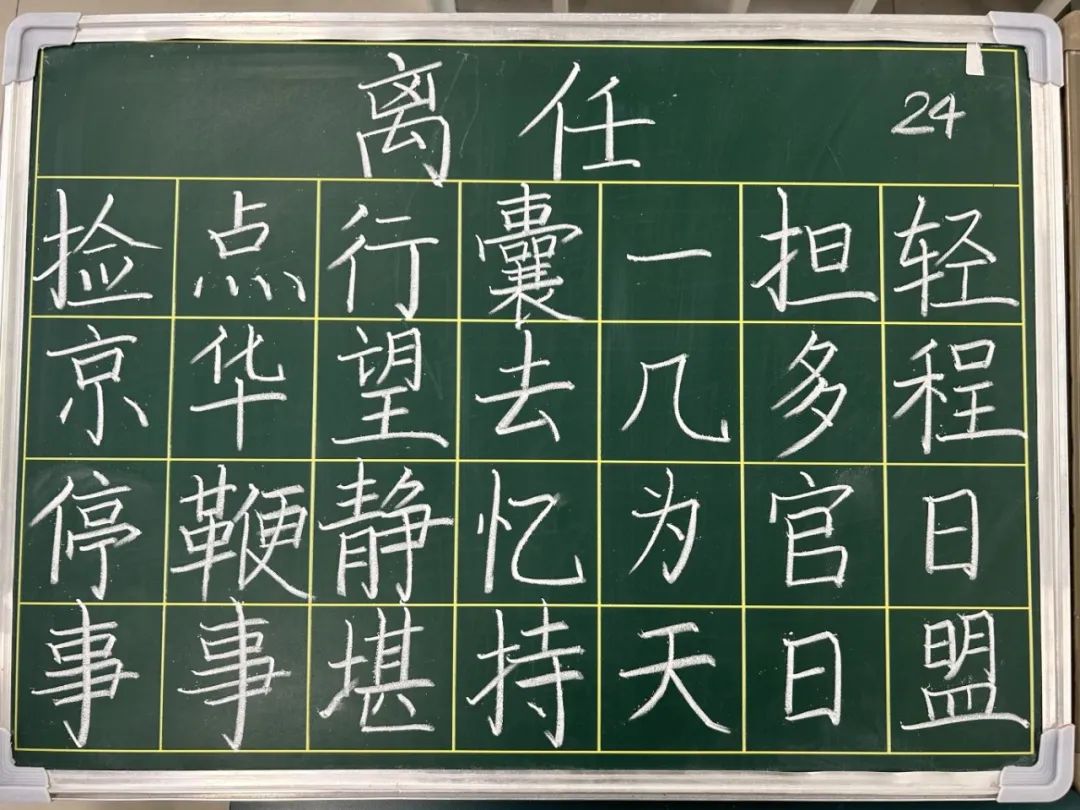 离任 24
捡点行囊一担轻
京华望去几多程
停鞭静忆为官日
事事堪持天日盟